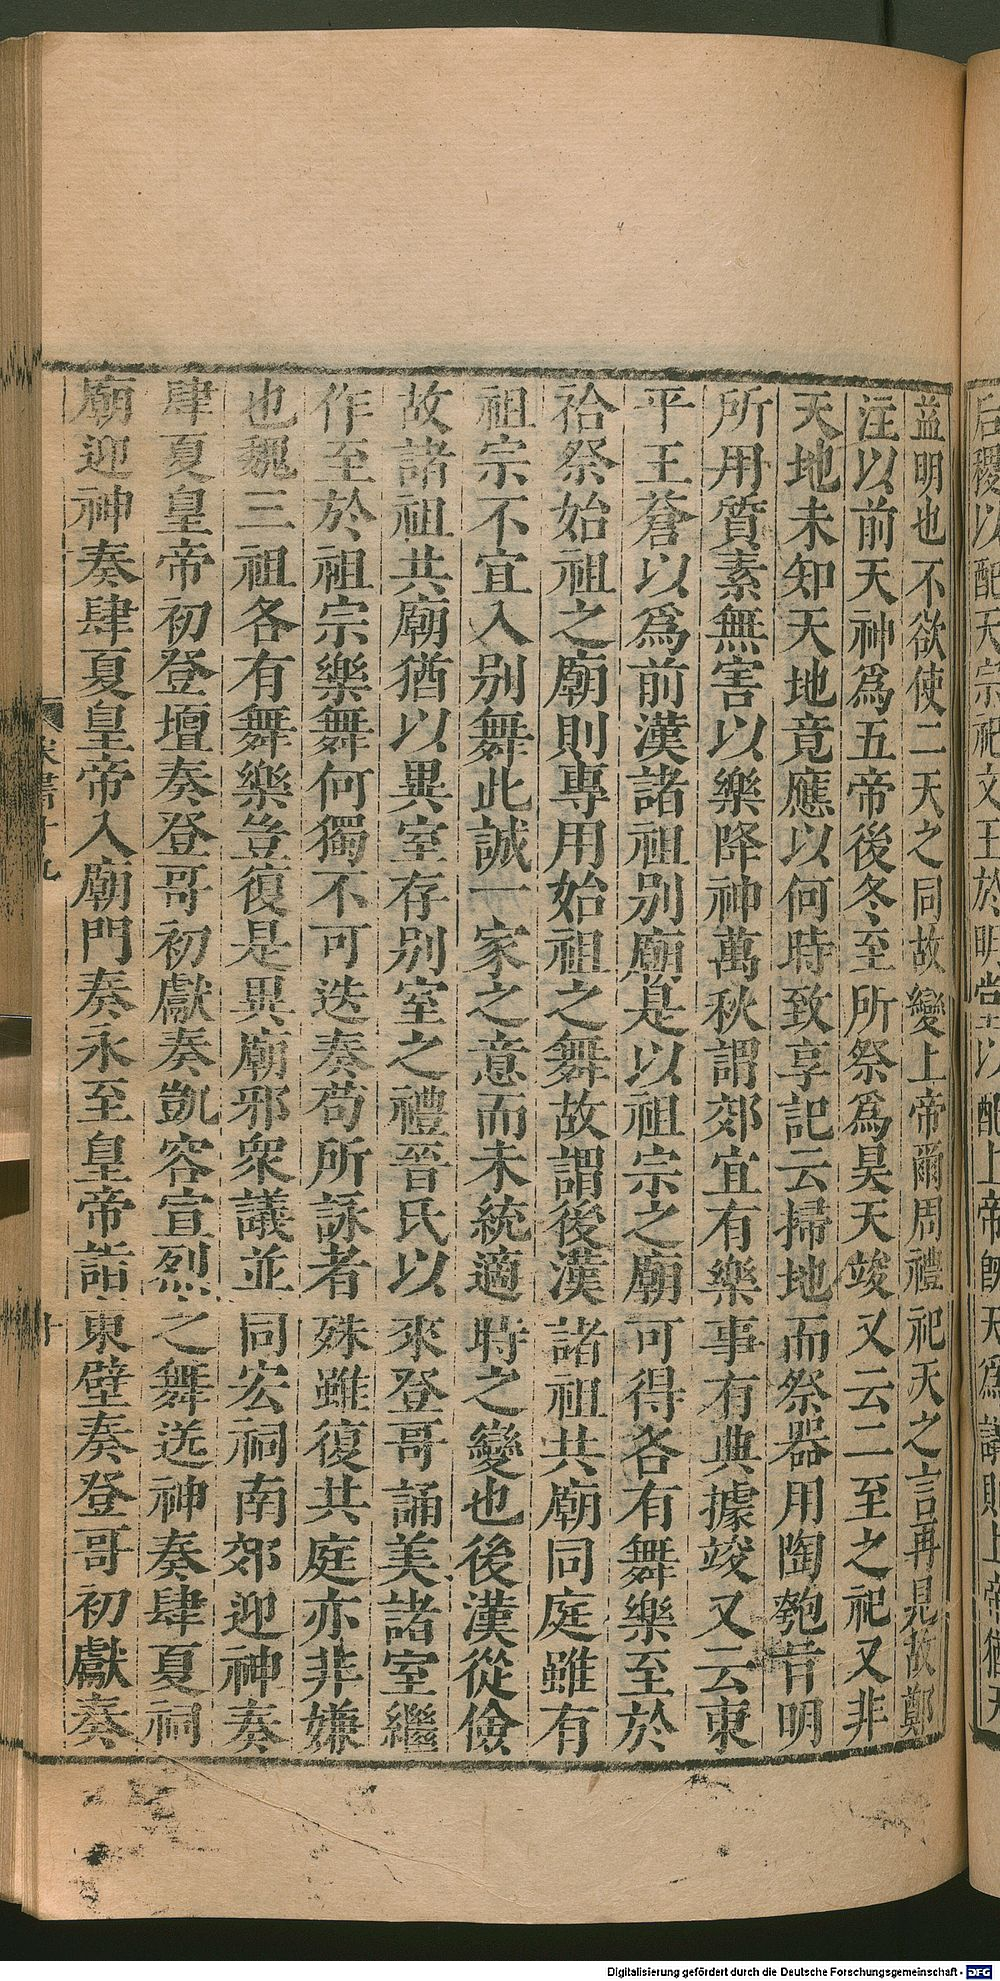 后稷以配天宗祀文王於明堂以配上帝旣天爲議則上帝猶天
益明也不欲使二天之同故變上帝爾周禮祀天之言再見故鄭
注以前天神爲五帝後冬至所祭爲昊天竣又云二至之祀又非
天地未知天地竟應以何時致享記云掃地而祭器用陶匏昔明
所用質素無害以樂降神萬秋謂郊宜有樂事有典據竣又云東
平王蒼以爲前漢諸祖別廟是以祖宗之廟可得各有舞樂至於
祫祭始祖之廟則專用始祖之舞故謂後漢諸祖共廟同庭雖有
祖宗不宜入別舞此誠一家之意而未統適時之變也後漢從儉
故諸祖共廟猶以異室存別室之禮晉氏以來登哥誦美諸室繼
作至於祖宗樂舞何獨不可迭奏苟所詠者殊雖復共庭亦非嫌
也魏三祖各有舞樂豈復是異廟邪衆議並同宏祠南郊迎神奏
肆夏皇帝初登壇奏登哥初獻奏凱容宣烈之舞送神奏肆夏祠
廟迎神奏肆夏皇帝入廟門奏永至皇帝詣東壁奏登哥初獻奏
Digitalisierung gefördert durch die Deutsche Forschungsgemeinschaft - DFG